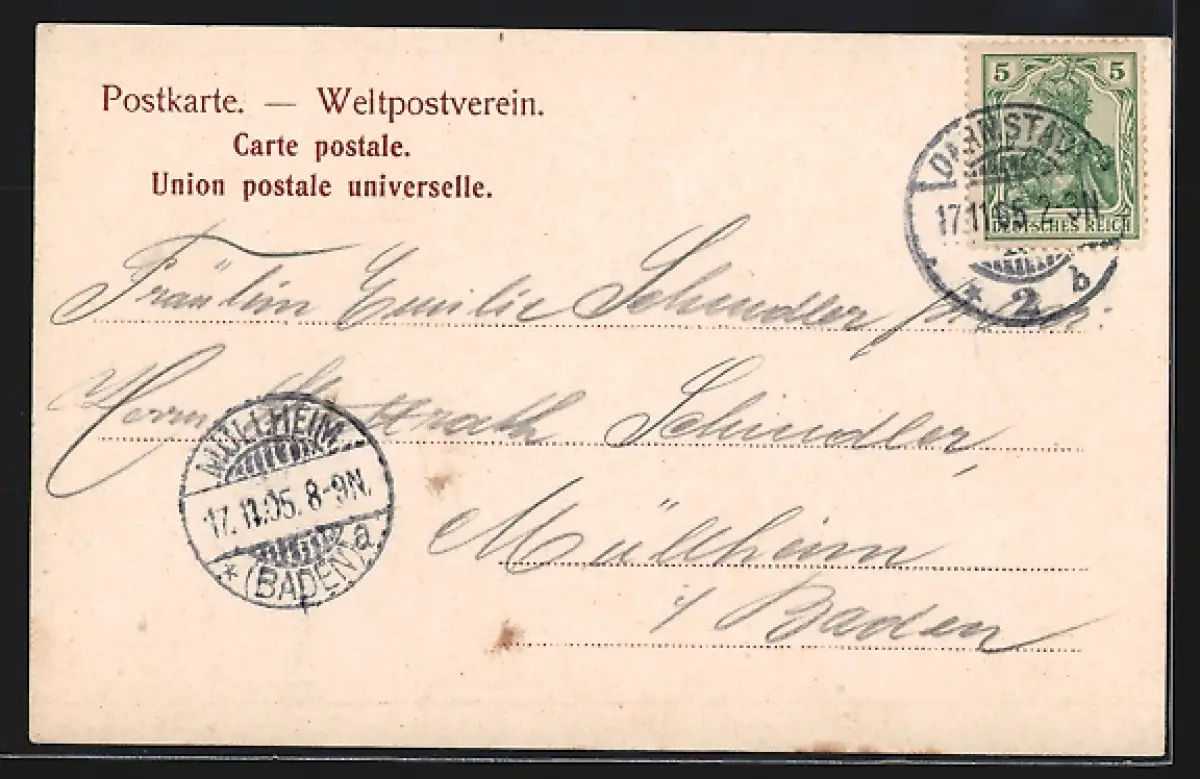 Postkarte. — Weltpostverein.
Carte postale.
Union postale universelle.
5 5
DEUTSCHES REICH
DARMSTADT
17.11.05. 2-3N
* 2 b
Fräulein Emilie Schindler
Herrn Schindler,
Müllheim
i/ Baden
MÜLLHEIM
17.11.05. 8-9N.
* (BADEN) a